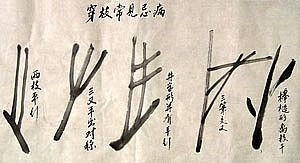 穿枝常見忌病
两枝平行
三叉平出对称
井字形並有平行
三筆交叉
棒槌的离枝干